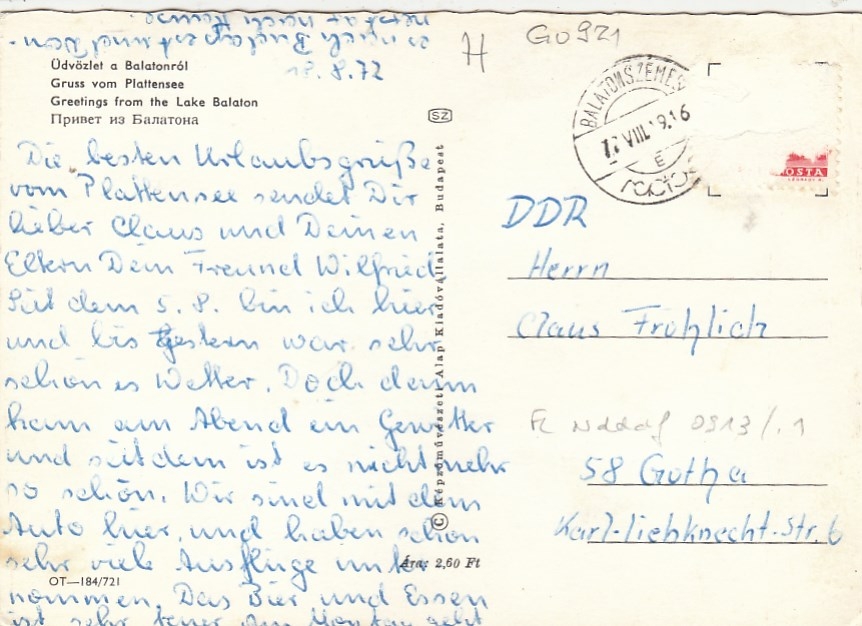 es nach Budapest und dann
nach Hause.
18.8.72
H
GO 921
Üdvözlet a Balatonról
Gruss vom Plattensee
Greetings from the Lake Balaton
Привет из Балатона
SZ
BALATONSZEMES
VIII. 19.16
E
POSTA
Die besten Urlaubsgrüße
vom Plattensee sendet Dir
lieber Claus und Deinen
Eltern Dein Freund Wilfried
Seit dem 5. 8. bin ich hier
und bis gestern war sehr
schönes Wetter. Doch dann
kam am Abend ein Gewitter
und seitdem ist es nicht mehr
so schön. Wir sind mit dem
Auto hier, und haben schon
sehr viele Ausflüge unter
nommen. Das Bier und Essen
ist sehr teuer. Am Montag geht
OT—184/721
Ára: 2,60 Ft
© Képzőművészeti Alap Kiadóvállalata, Budapest
DDR
Herrn
Claus Fröhlich
0913/.1
58 Gotha
Karl-Liebknecht-Str. 6